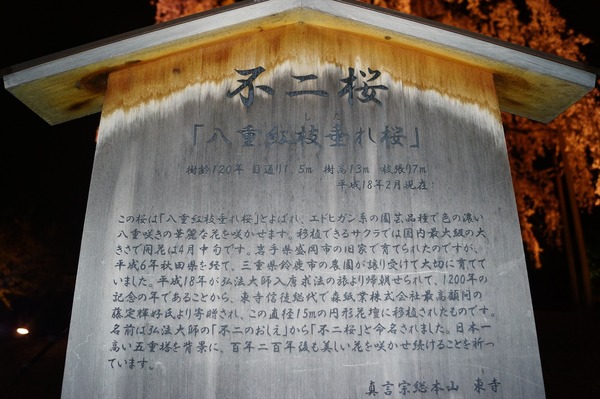 不二桜
「八重紅枝垂れ桜」
樹齢120年 目通り1.5m 樹高13m 枝張り7m
平成18年2月現在
この桜は「八重紅枝垂れ桜」とよばれ、エドヒガン系の園芸品種で色の濃い
八重咲きの華麗な花を咲かせます。移植できるサクラでは国内最大級の大
きさで開花は4月中旬です。岩手県盛岡市の旧家で育てられたのですが、
平成6年秋田県を経て、三重県鈴鹿市の農園が譲り受けて大切に育てて
いました。平成18年が弘法大師入唐求法の旅より帰朝せられて、1200年の
記念の年であることから、東寺信徒総代で森紙業株式会社最高顧問の
藤定輝好氏より寄贈され、この直径15mの円形花壇に移植されたものです。
名前は弘法大師の「不二のおしえ」から「不二桜」と命名されました。日本一
高い五重塔を背景に、百年二百年後も美しい花を咲かせ続けることを祈っ
ています。
真言宗総本山 東寺